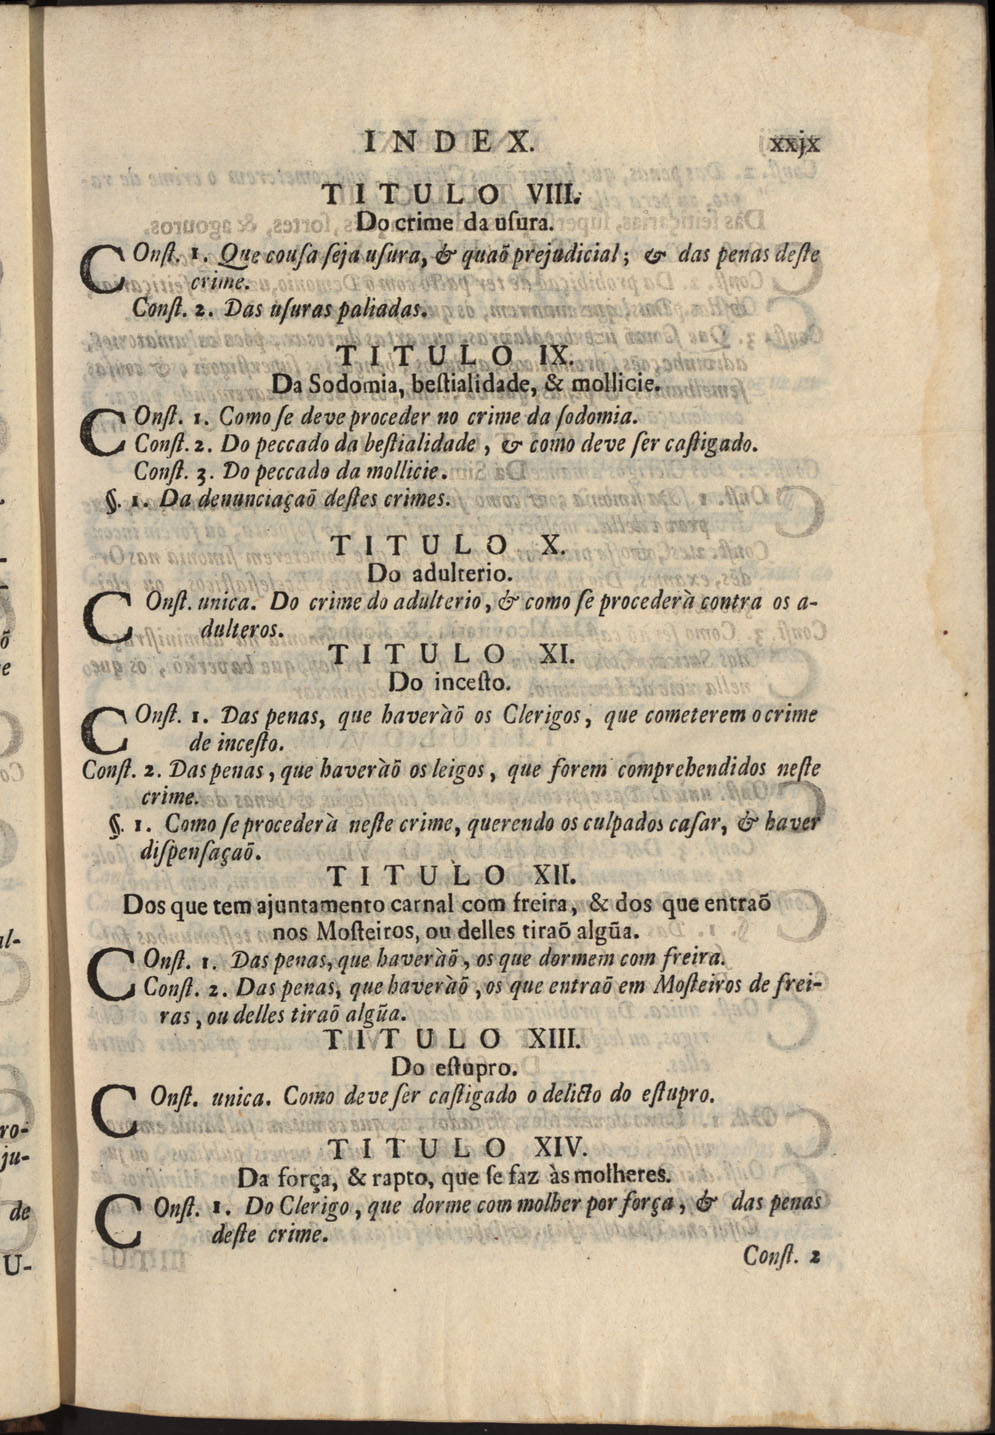 INDEX. xxjx
TITULO VIII.
Do crime da uſura.
COnſt. 1. Que couſa ſeja uſura, & quaõ prejudicial; & das penas deſte
crime.
Conſt. 2. Das uſuras paliadas.
TITULO IX.
Da Sodomia, beſtialidade, & mollicie.
COnſt. 1. Como ſe deve proceder no crime da ſodomia.
Conſt. 2. Do peccado da beſtialidade, & como deve ſer caſtigado.
Conſt. 3. Do peccado da mollicie.
§. 1. Da denunciaçaõ deſtes crimes.
TITULO X.
Do adulterio.
COnſt. unica. Do crime do adulterio, & como ſe procederà contra os a-
dulteros.
TITULO XI.
Do inceſto.
COnſt. 1. Das penas, que haveràõ os Clerigos, que cometerem o crime
de inceſto.
Conſt. 2. Das penas, que haveràõ os leigos, que forem comprehendidos neſte
crime.
§. 1. Como ſe procederà neſte crime, querendo os culpados caſar, & haver
diſpenſaçaõ.
TITULO XII.
Dos que tem ajuntamento carnal com freira, & dos que entraõ
nos Moſteiros, ou delles tiraõ algũa.
COnſt. 1. Das penas, que haveràõ, os que dormem com freira.
Conſt. 2. Das penas, que haveràõ, os que entraõ em Moſteiros de frei-
ras, ou delles tiraõ algũa.
TITULO XIII.
Do eſtupro.
COnſt. unica. Como deve ſer caſtigado o delicto do eſtupro.
TITULO XIV.
Da força, & rapto, que ſe faz às molheres.
COnſt. 1. Do Clerigo, que dorme com molher por força, & das penas
deſte crime.
Conſt. 2